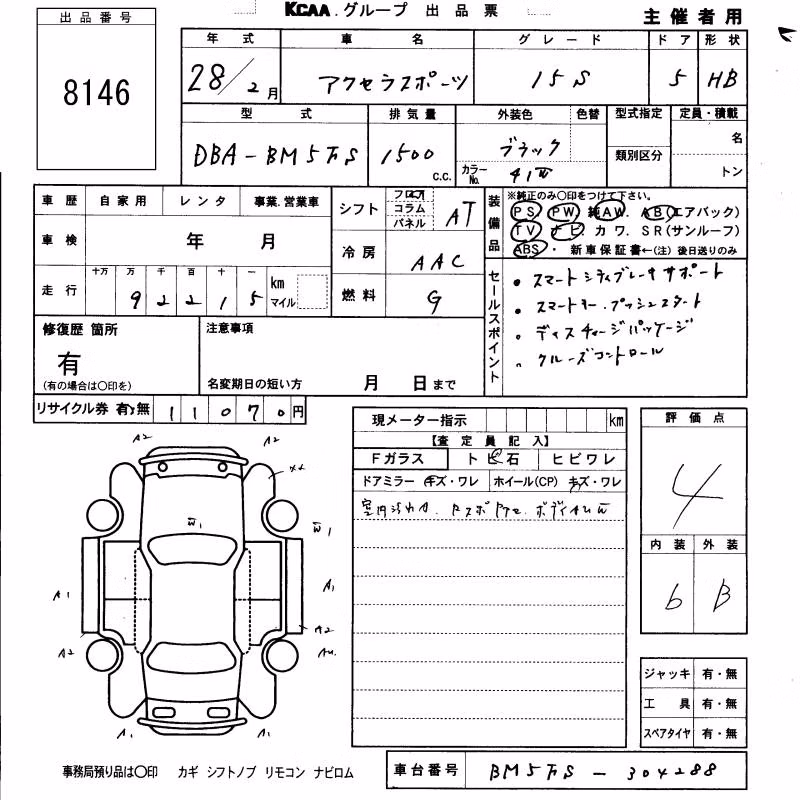 KCAA.グループ 出品票
主催者用
出品番号
8146
年式 車名 グレード ドア 形状
28/2月 アクセラスポーツ 15S 5 HB
型式 排気量 外装色 色替 型式指定 定員・積載
DBA-BM5FS 1500 c.c. ブラック 類別区分 名
カラーNo. 41W トン
車歴 自家用 レンタ 事業.営業車
シフト フロア コラム パネル AT
車検 年 月
冷房 AAC
走行 十万 万 千 百 十 一 km マイル
92215
燃料 G
装備品
※純正のみ○印をつけて下さい。
PS. PW. 純AW. AB(エアバック)
TV ナビ. カワ. SR(サンルーフ)
ABS・ 新車保証書←(注)後日送りのみ
セールスポイント
・スマートシティブレーキサポート
・スマートキー.プッシュスタート
・ディスチャージパッケージ
・クルーズコントロール
修復歴 箇所
有
(有の場合は○印を)
注意事項
名変期日の短い方 月 日まで
リサイクル券 有・無 11070円
現メーター指示 km
【査定員記入】
Fガラス トビ石 ヒビワレ
ドアミラー キズ・ワレ ホイール(CP) キズ・ワレ
評価点
4
内装 外装
6 B
A2 A2
W1
W1
A1 A1
A2 A2
A1 A1
ジャッキ 有・無
工具 有・無
スペアタイヤ 有・無
事務局預り品は○印 カギ シフトノブ リモコン ナビロム
車台番号 BM5FS-304288